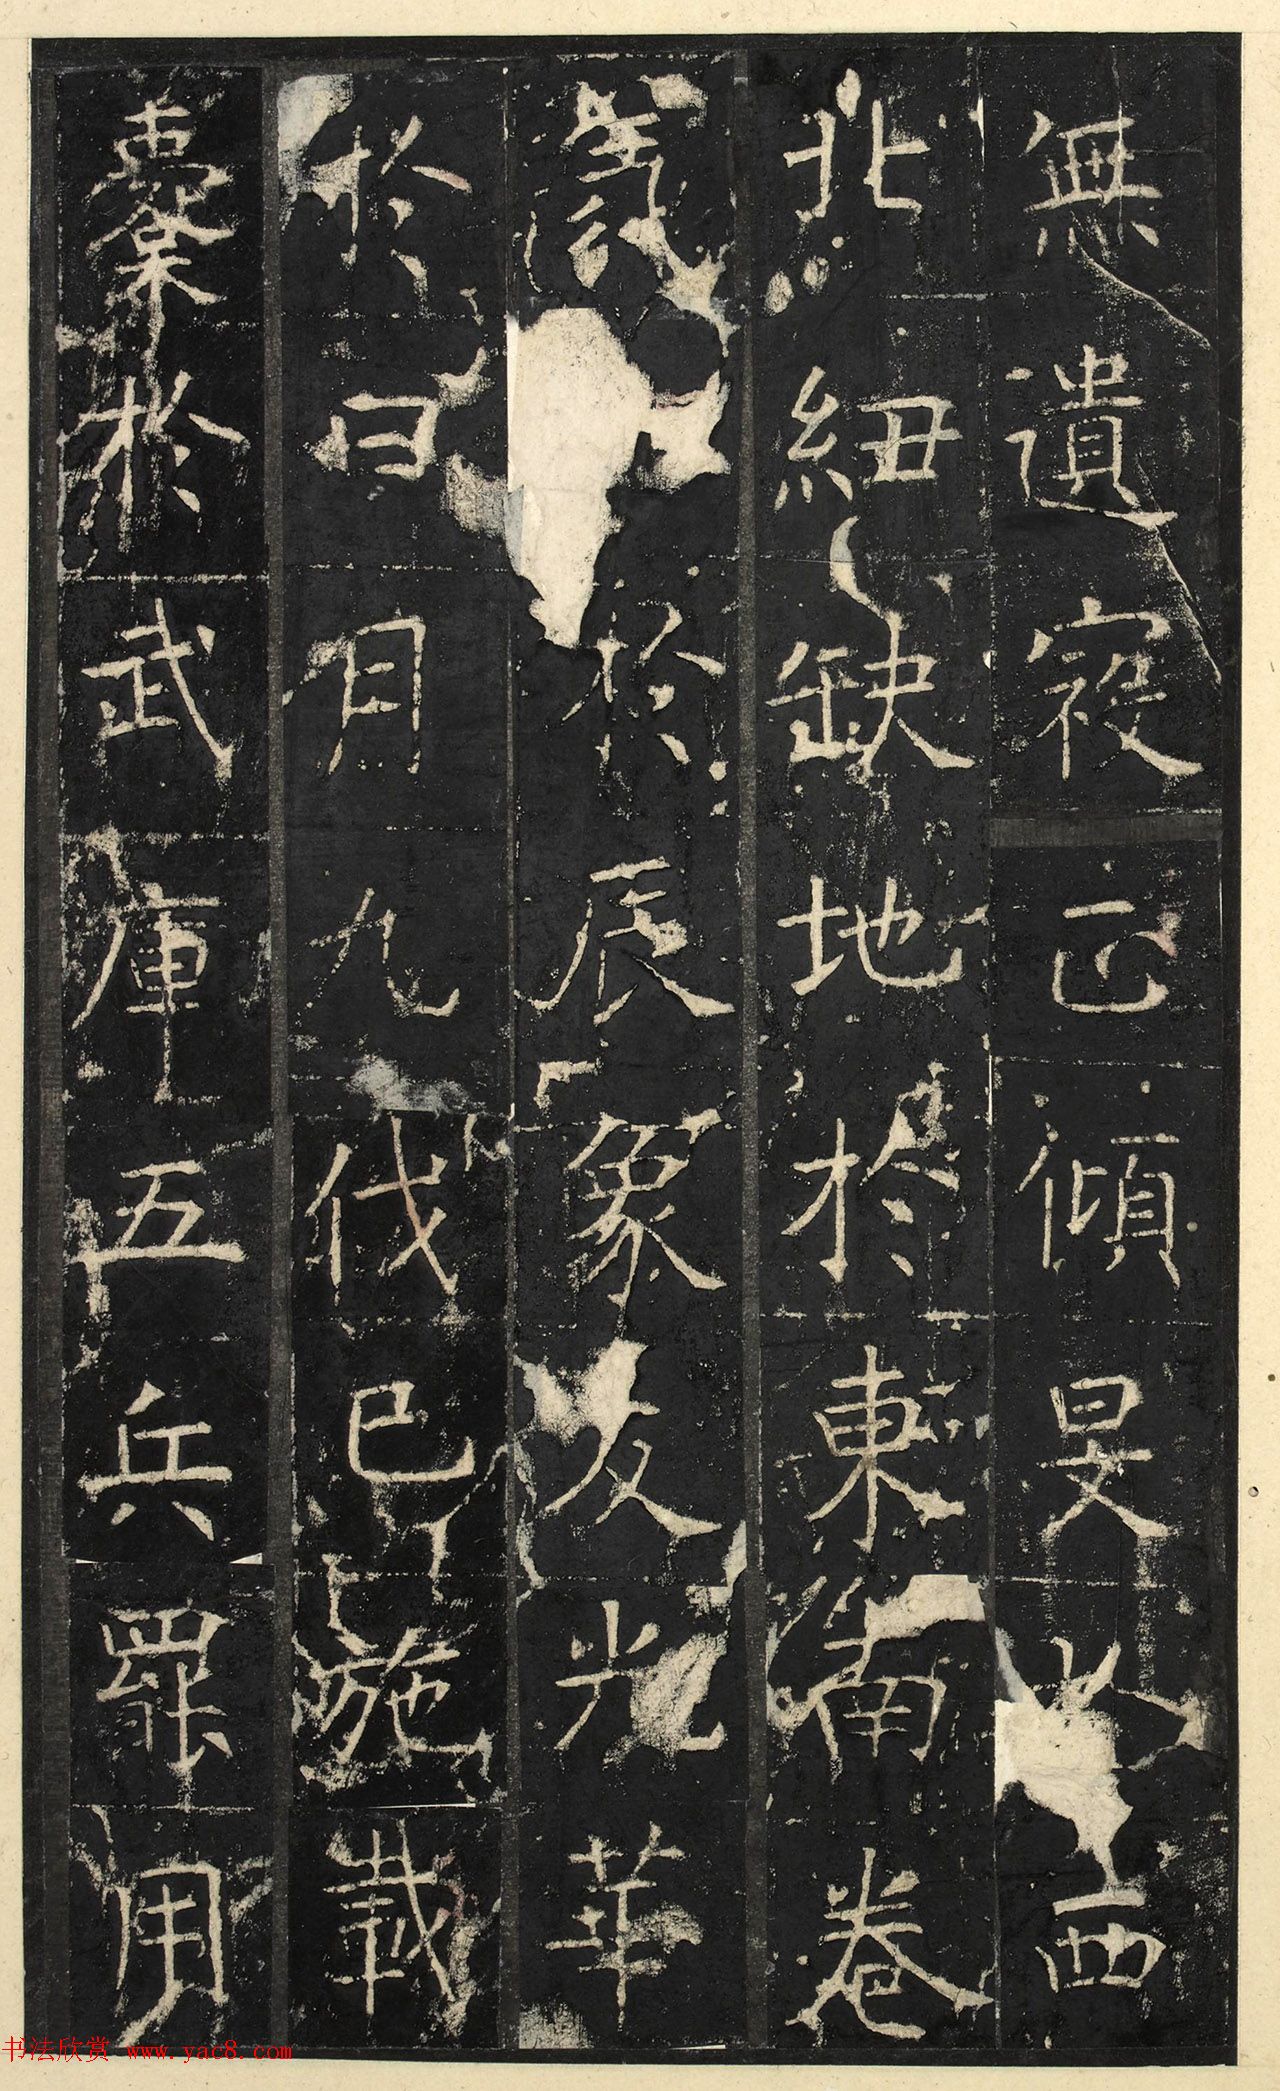 無遺寇正傾旻於西
北紐缺地於東南卷
氛於辰象反光華
於日月九伐已施載
櫜於武庫五兵罷用
书法欣赏 www.yac8.com